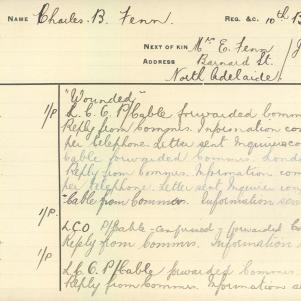 NAME Charles. B. Fenn. REG. &C. 10th B
NEXT OF KIN Mr E. Fenn
ADDRESS Barnard St.
North Adelaide
"Wounded"
1/P L.C.O. P/Cable forwarded Comm
Reply from Commrs. Information con
per telephone. Letter sent Inquirer con
Cable forwarded Commrs. Londo
Reply from Commrs. Information com
per telephone. Letter sent. Inquirer con
Cable from Commrs. Information sen
1/P. LCO P/Cable confirmed & forwarded Co
Reply from Commrs. Information s
1/P L.C.O. P/Cable forwarded Comm
Reply from Commrs. Information s